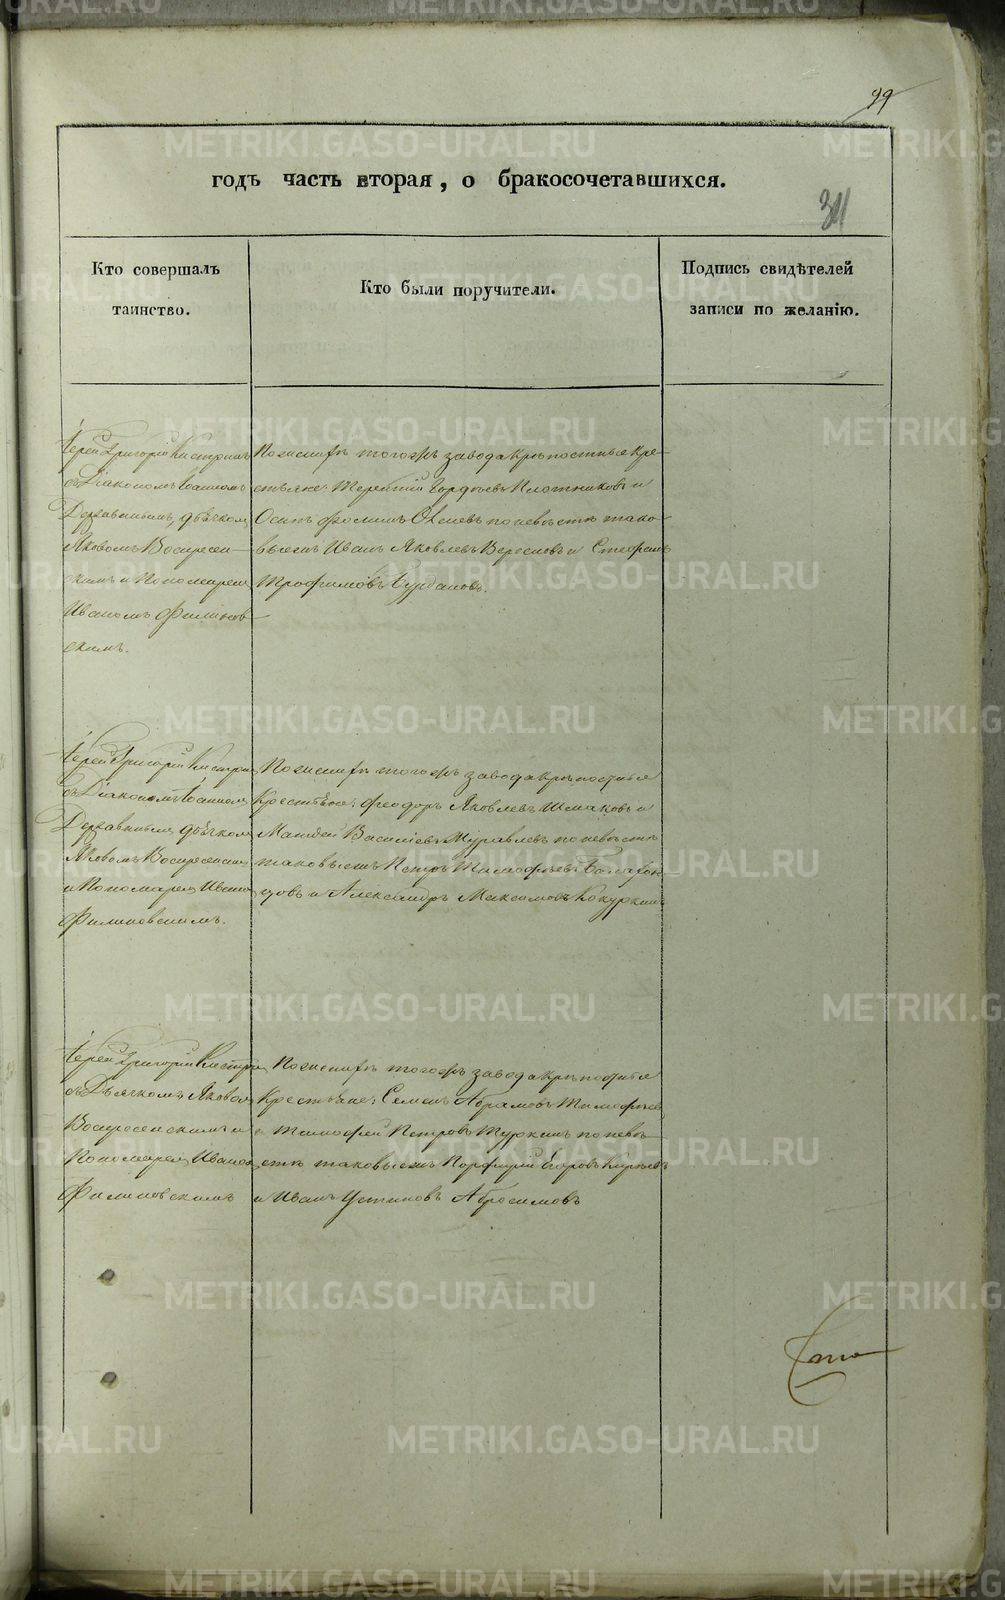 99
годъ часть вторая, о бракосочетавшихся.
311
Кто совершалъ
таинство.
Кто были поручители.
Подпись свидѣтелей
записи по желанію.
Іерей Григорій
съ Діакономъ Іоанномъ
Державинымъ, дьячкомъ
Яковомъ Воскресен-
скимъ и Пономаремъ
Иваномъ Филинов-
скимъ.
По женихѣ того жъ завода крѣпостные кре-
стьяне: Терентій Гордѣевъ Плотниковъ и
Осипъ Фоминъ по невѣстѣ тако-
выежъ Иванъ Яковлевъ и Стефанъ
Трофимовъ Курбановъ.
Іерей Григорій
съ Діакономъ Іоанномъ
Державинымъ, дьячкомъ
Яковомъ Воскресенскимъ
и Пономаремъ Иваномъ
Филиновскимъ.
По женихѣ того жъ завода крѣпостные
Крестьяне: Феодоръ Яковлевъ Шмаковъ и
Матвей Васильевъ Журавлевъ по невѣстѣ
таковыежъ Петръ Тимофѣевъ
и Александръ Максимовъ Кокуркинъ
Іерей Григорій
съ Дьячкомъ Яковомъ
Воскресенскимъ и
Пономаремъ Иваномъ
Филиновскимъ
По женихѣ того жъ завода крѣпостные
Крестьяне: Семенъ Абрамовъ Тимофѣевъ
и Тимофей Петровъ Туркинъ по невѣ-
стѣ таковыежъ Порфирій Егоровъ
и Иванъ Устиновъ Абросимовъ
METRIKI.GASO-URAL.RU